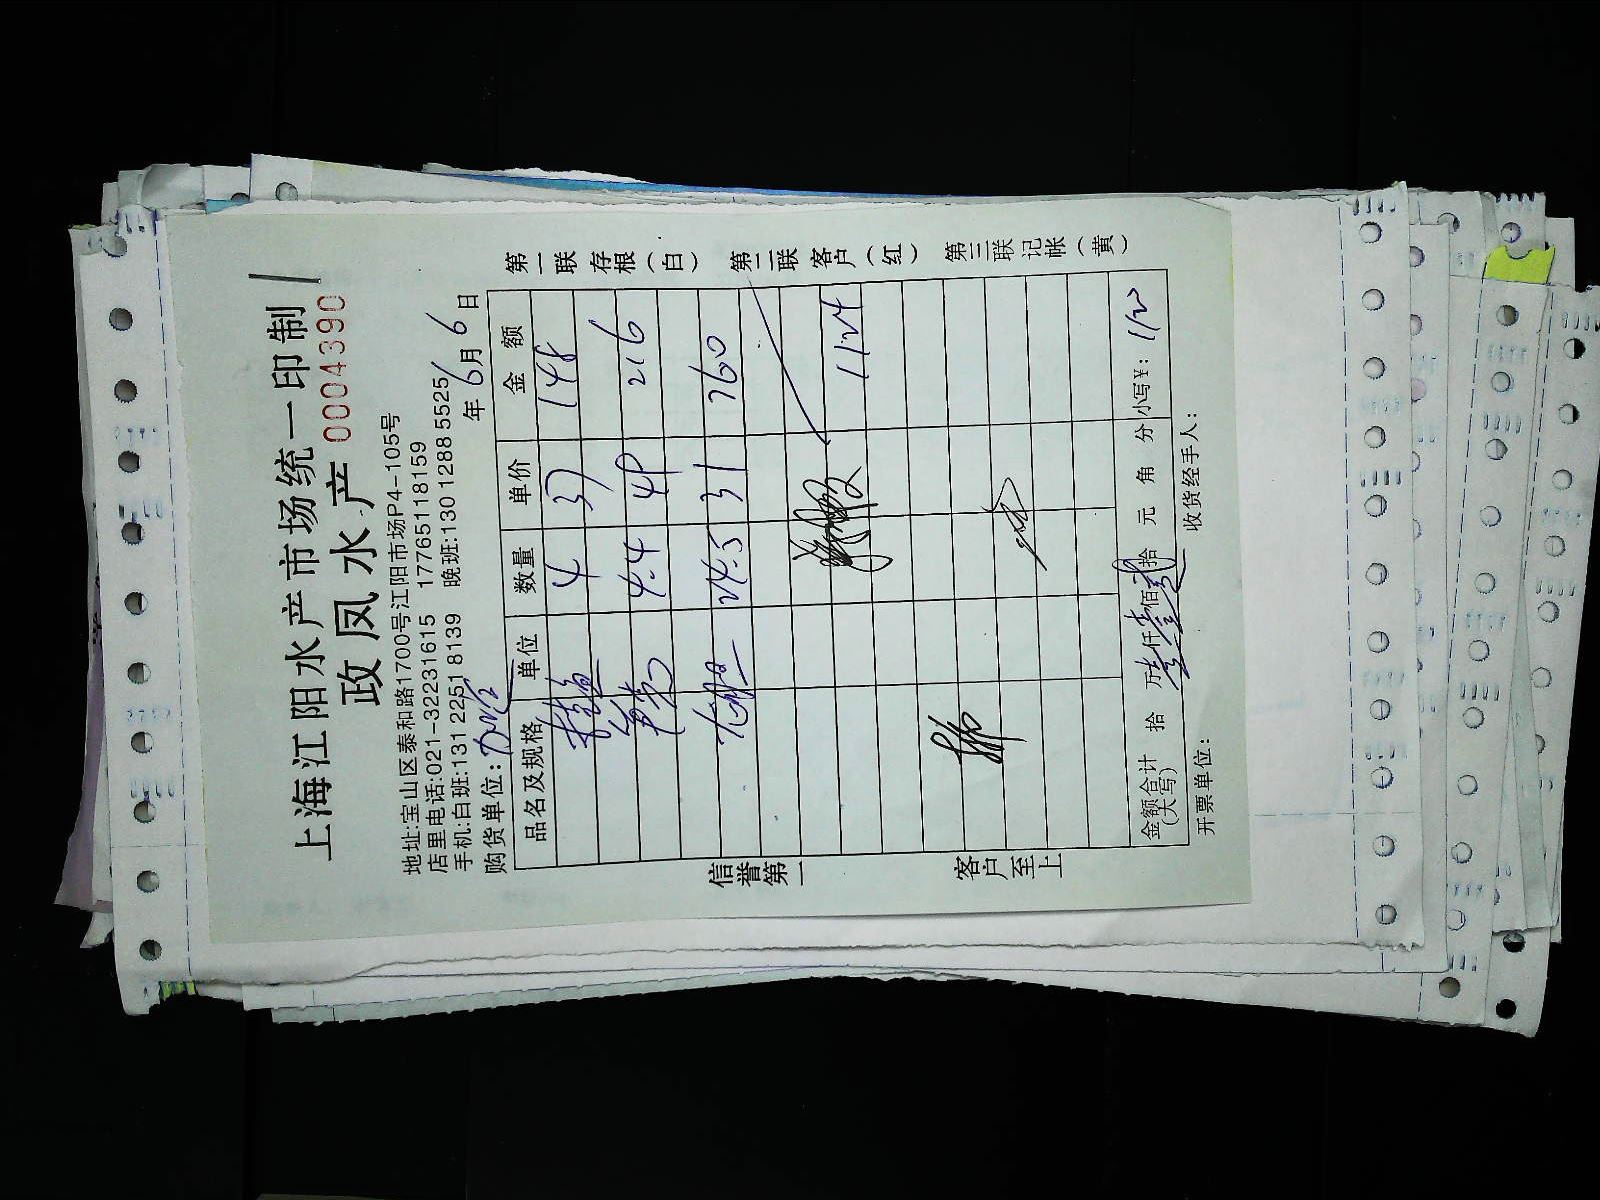 上海江阳水产市场统一印制
政凤水产 0004390
地址:宝山区泰和路1700号江阳市场P4-105号
店里电话:021-32231615 17765118159
手机:白班:131 2251 8139 晚班:130 1288 5525
购货单位: 年 6月 6日
品名及规格 单位 数量 单价 金额
4 37 148
4.4 49 216
24.5 31 760
1124
金额合计(大写) 拾 万 仟 佰 拾 元 角 分 小写¥:
开票单位: 收货经手人:
信誉第一 客户至上
第一联存根(白) 第二联客户(红) 第三联记帐(黄)